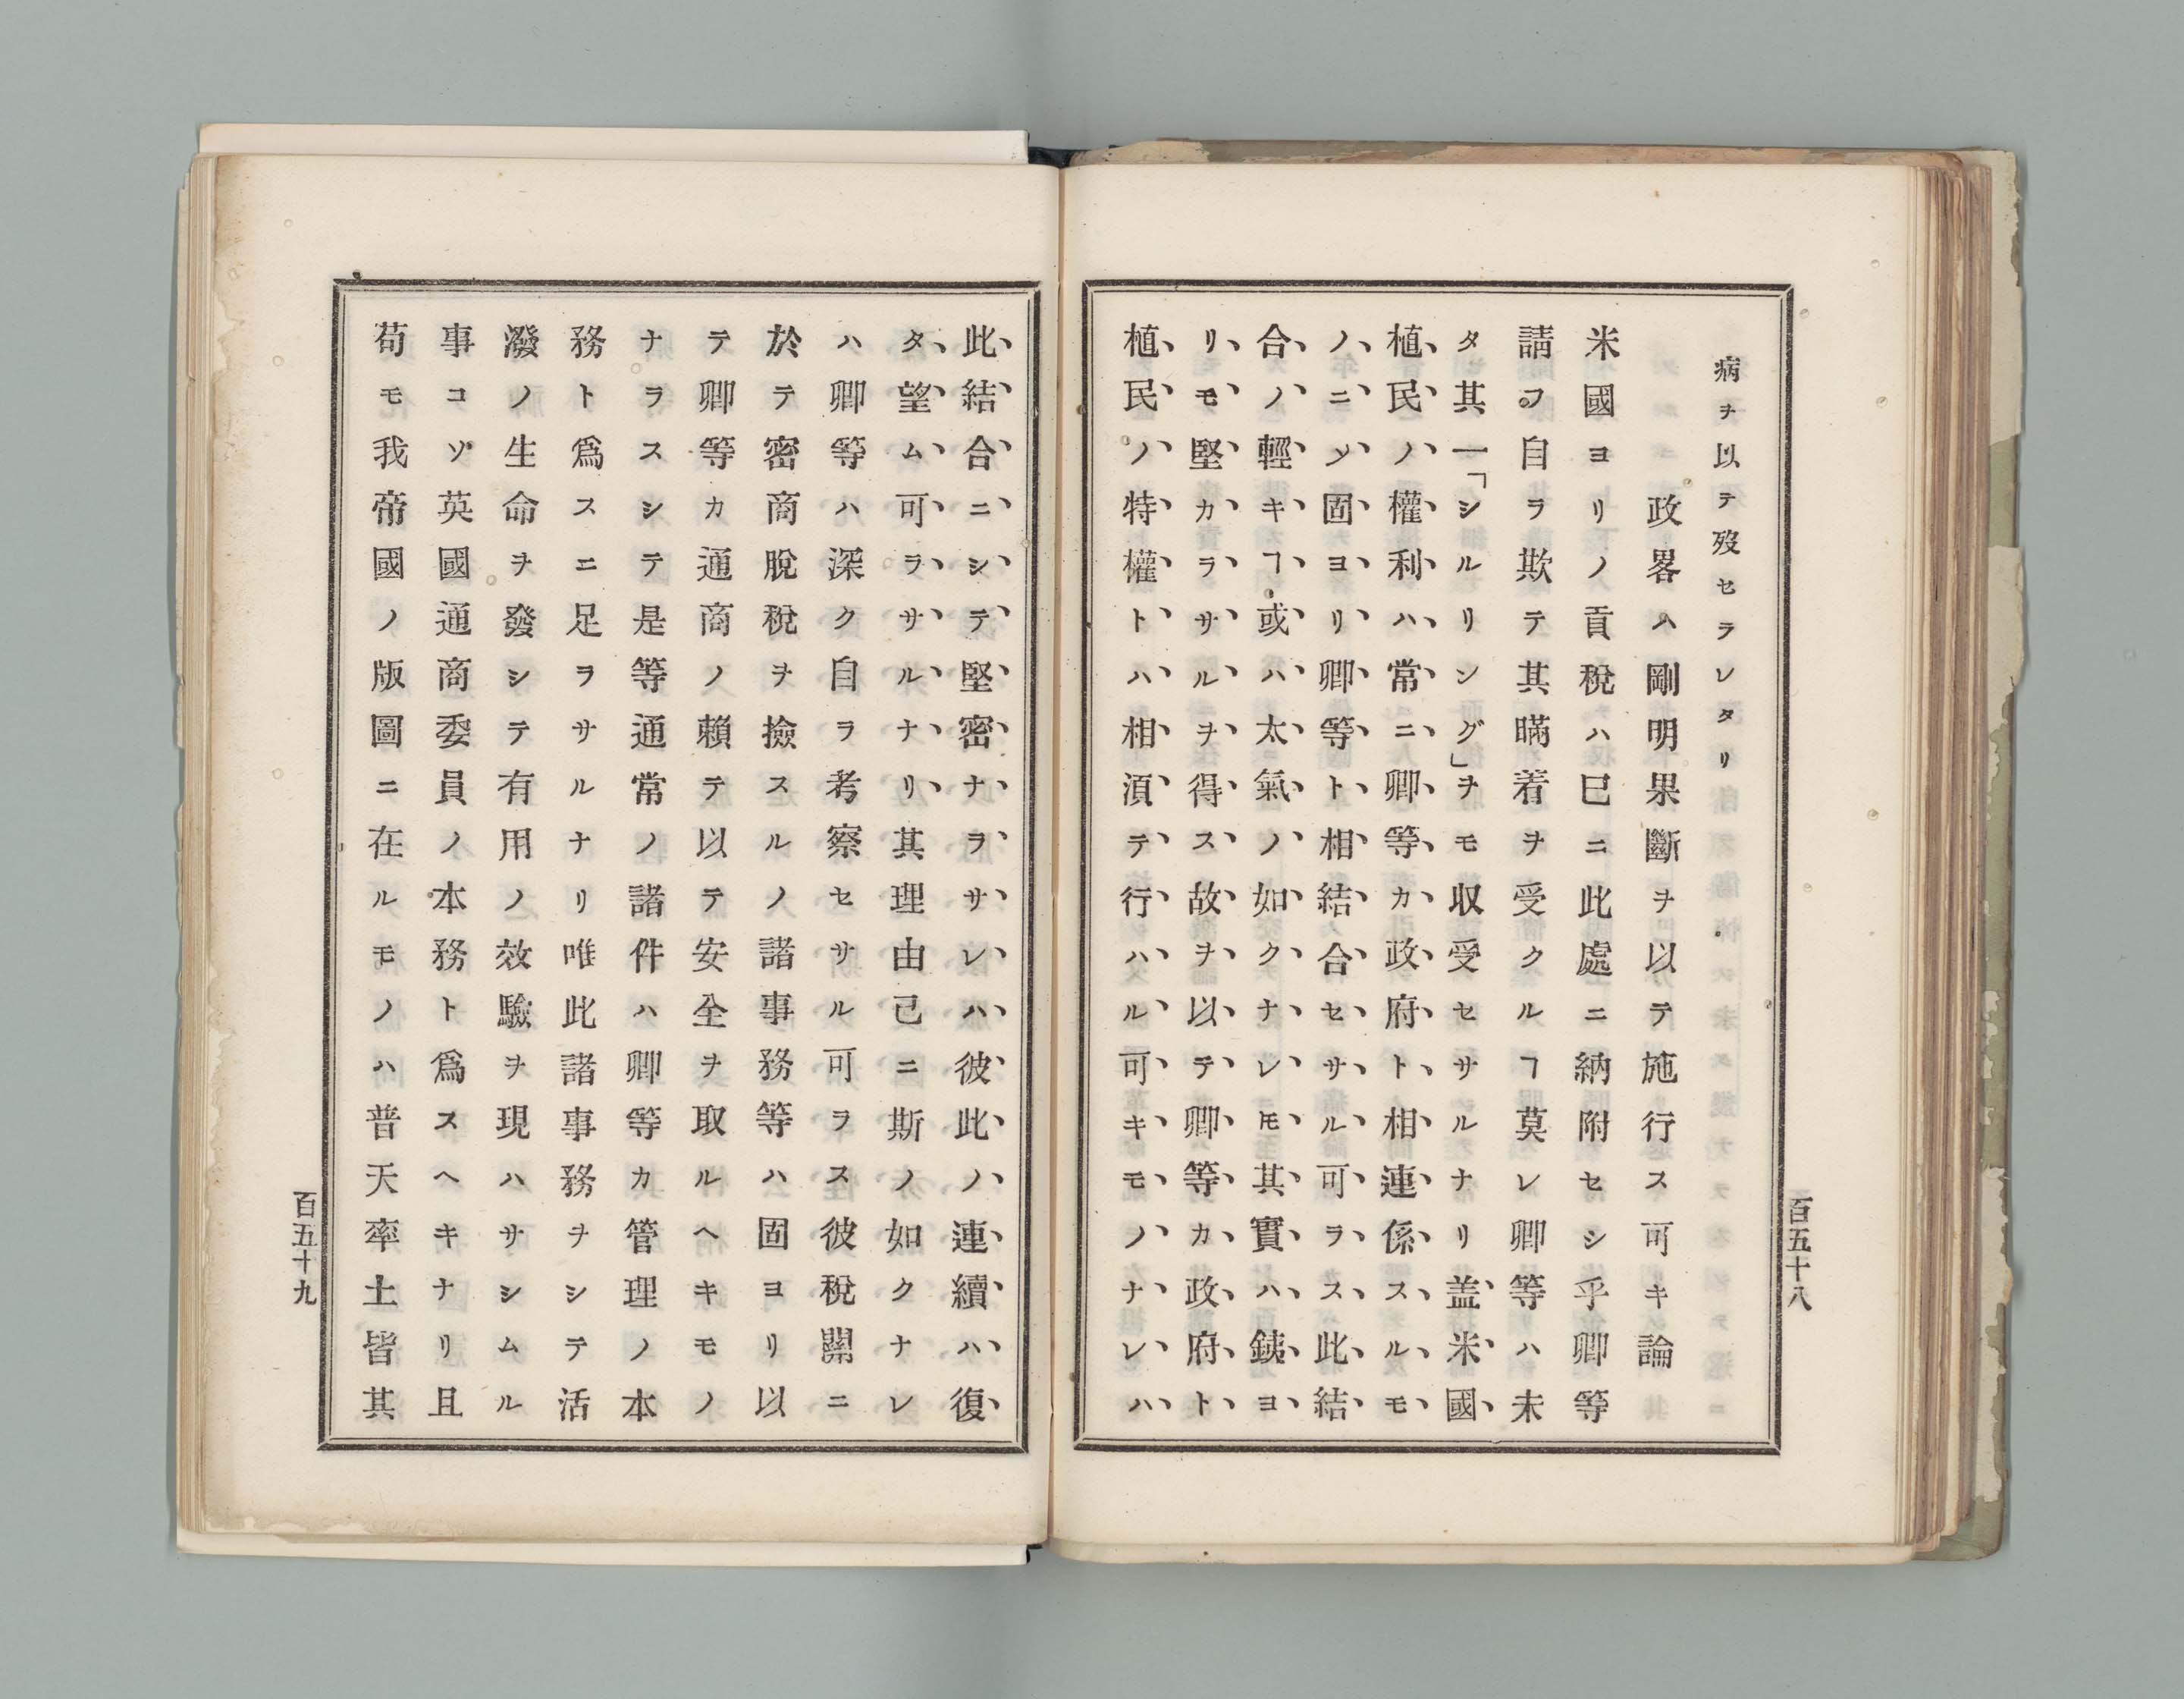 病ヲ以テ歿セラレタリ
政畧ハ剛明果斷ヲ以テ施行ス可キ論
米國ヨリノ貢稅ハ已ニ此處ニ納附セシ乎卿等
請フ自ヲ欺テ其瞞着ヲ受クルヿ莫レ卿等ハ未
タ其一「シルリング」ヲモ収受セサルナリ盖米國
植民ノ權利ハ常ニ卿等カ政府ト相連係スルモ
ノニヿ固ヨリ卿等ト相結合セサル可ラス此結
合ノ輕キヿ或ハ太氣ノ如クナレ𪜈其實ハ銕ヨ
リモ堅カラサルヲ得ス故ヲ以テ卿等カ政府ト
植民ノ特權トハ相湏テ行ハル可キモノナレハ
百五十八
此結合ニシテ堅密ナヲサレハ彼此ノ連續ハ復
タ望ム可ラサルナリ其理由已ニ斯ノ如クナレ
ハ卿等ハ深ク自ヲ考察セサル可ヲス彼稅關ニ
於テ密商脫稅ヲ撿スルノ諸事務等ハ固ヨリ以
テ卿等カ通商ノ賴テ以テ安全ヲ取ルヘキモノ
ナラスシテ是等通常ノ諸件ハ卿等カ管理ノ本
務ト爲スニ足ラサルナリ唯此諸事務ヲシテ活
潑ノ生命ヲ發シテ有用ノ效驗ヲ現ハサシムル
事コソ英國通商委員ノ本務ト爲スヘキナリ且
苟モ我帝國ノ版圖ニ在ルモノハ普天率土皆其
百五十九